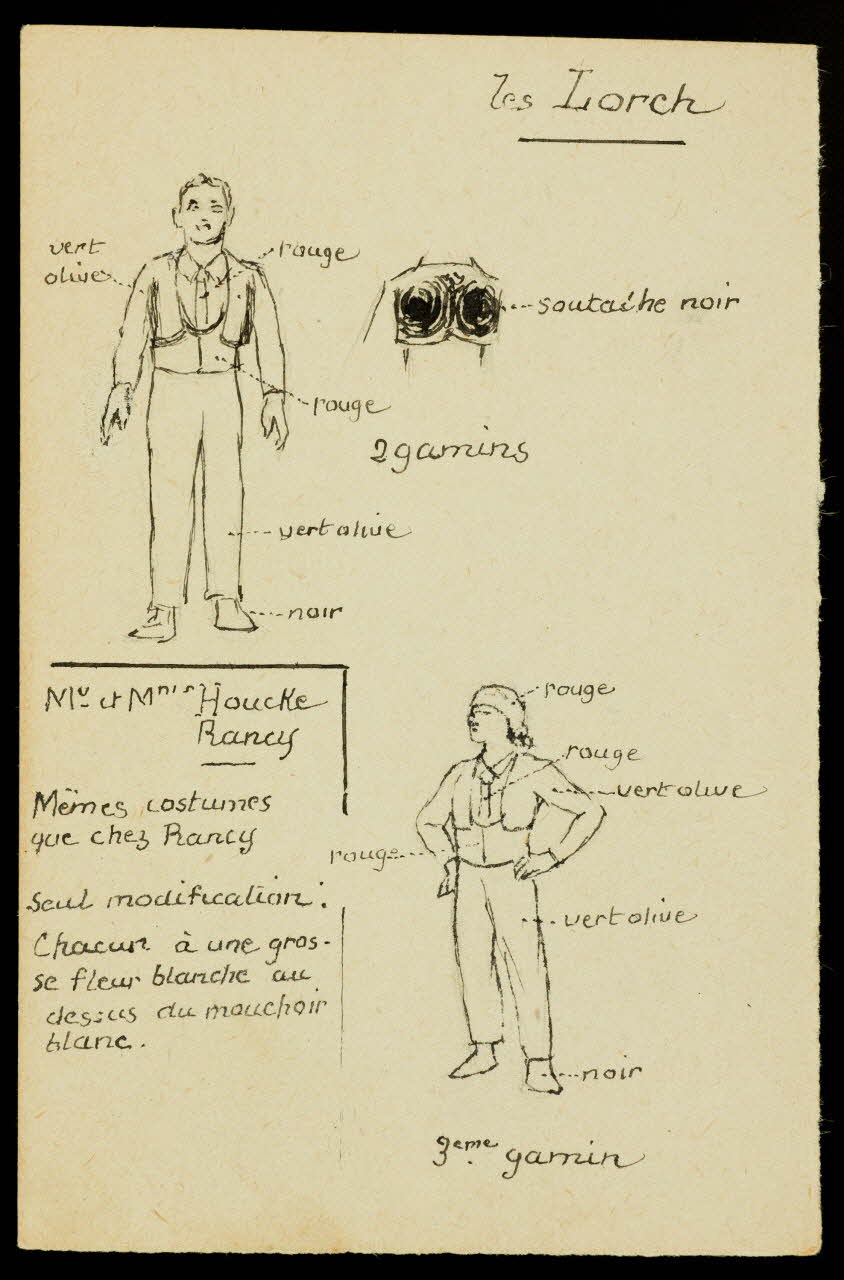 les Lorch
vert
olive
rouge
soutache noir
rouge
2 gamins
vert olive
noir
Mr et Mme Houcke
Rancy
Mêmes costumes
que chez Rancy
Seul modification :
Chacun à une gros-
se fleur blanche au
dessus du mouchoir
blanc.
rouge
rouge
vert olive
rouge
vert olive
noir
3eme gamin